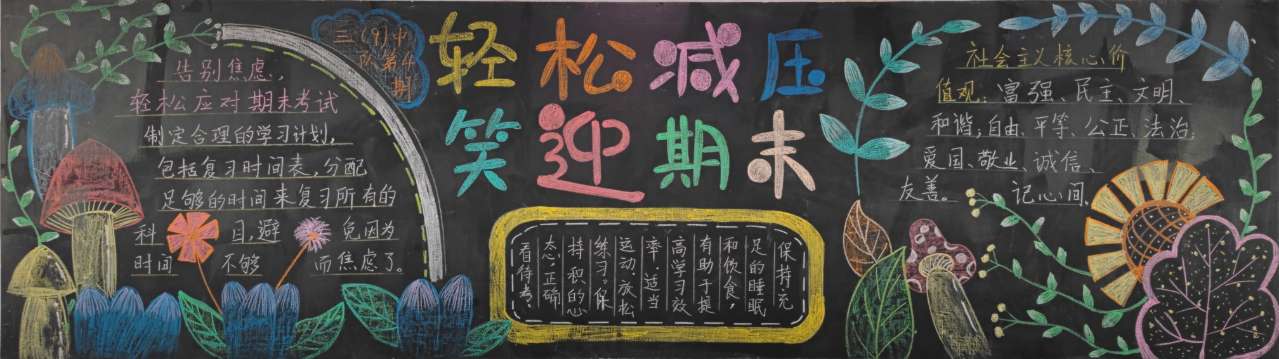 三(9)中
队第4
期
轻松减压
笑迎期末
告别焦虑,
轻松应对期末考试
制定合理的学习计划,
包括复习时间表,分配
足够的时间来复习所有的
科目,避免因为
时间不够而焦虑了。
保持充
足的睡眠
和饮食,
有助于提
高学习效
率.适当
运动.放松
练习。保
持积的心
态.正确
看待考.
社会主义核心价
值观:富强、民主、文明、
和谐;自由、平等、公正、法治;
爱国、敬业、诚信、
友善。记心间.